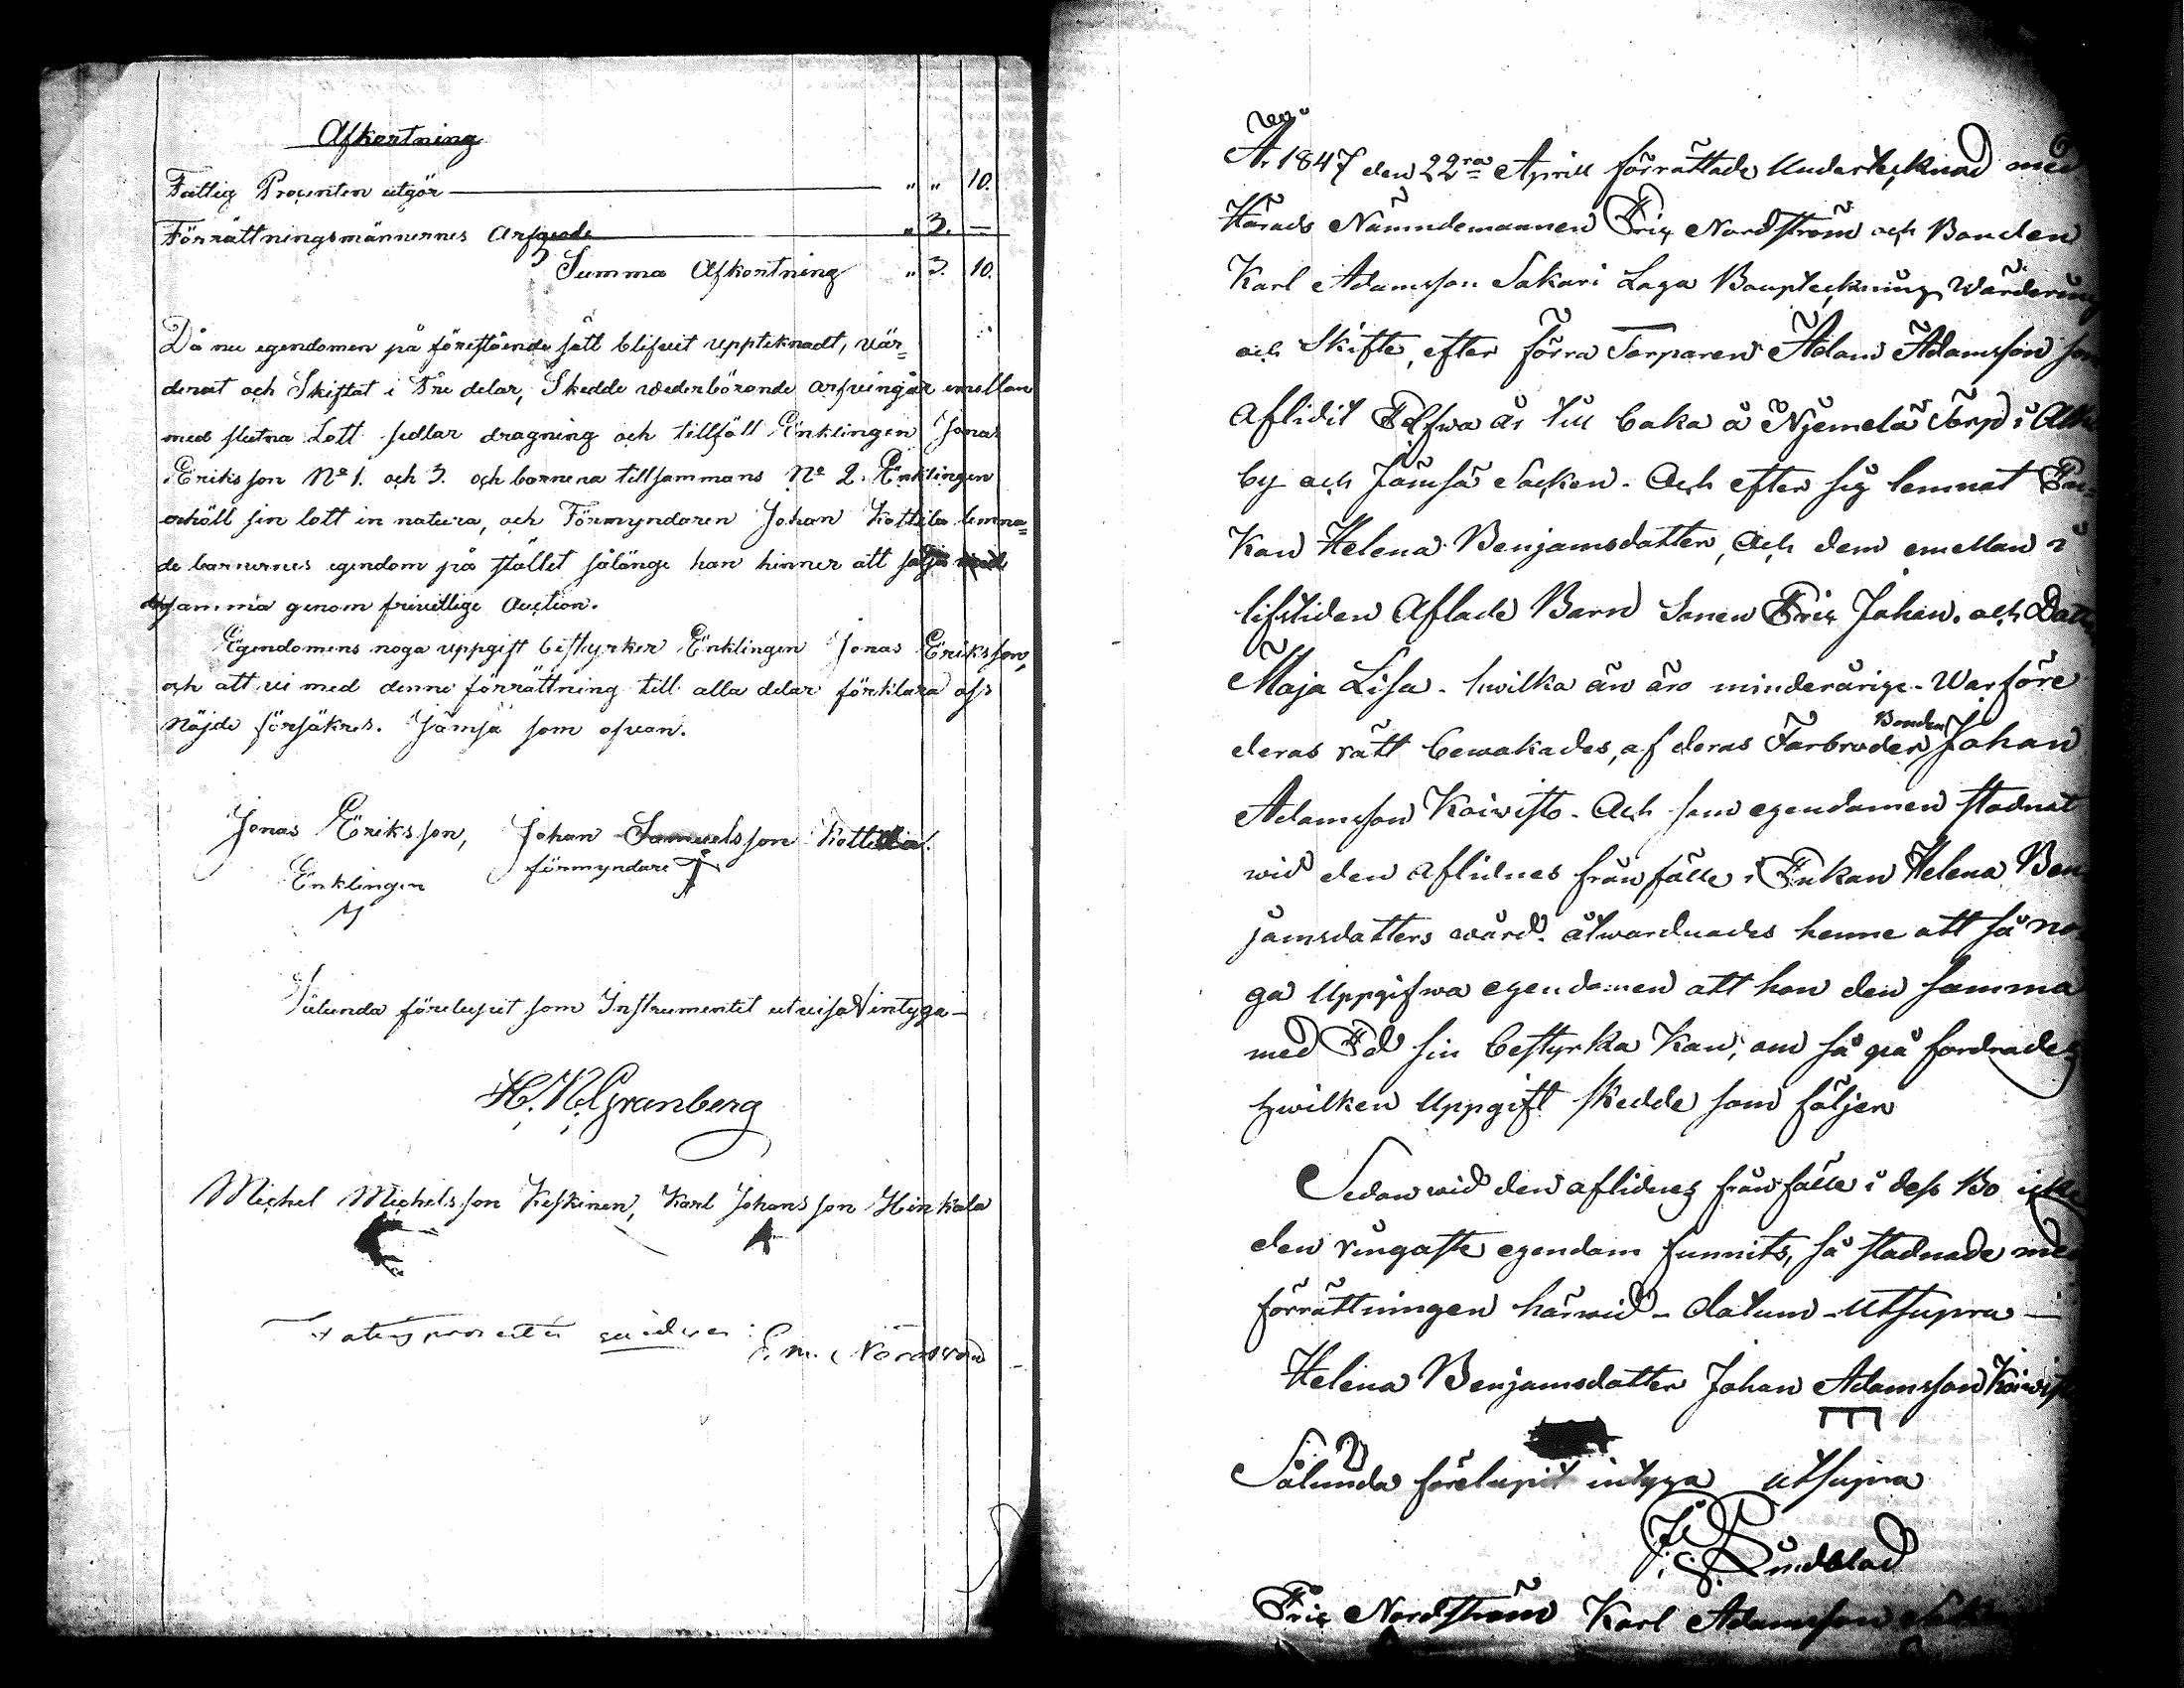 Afkortning
Fattig Procenten utgör — " " 10.
Förrättningsmännernes Arfvode — " 3. —
Summa Afkortning " 3. 10.
Då nu egendomen på föreståënde sätt blifvit upptecknadt, vär=
derat och Skiftat i Tre delar, Skedde wederbörande arfvingar emellan
med slutna Lott sedlar dragning och tillföll Enklingen Jonas
Eriksson No 1. och 3. och barnena tillsammans No 2. Enklingen
erhöll sin lott in natura, och Förmyndaren Johan Kottila lemna=
de barnernes egendom på stället sålänge han hinner att sälja
samma genom frivillige Auction.
Egendomens noga uppgift bestyrker Enklingen Jonas Eriksson,
och att vi med denne förrättning till alla delar förklara oss
Nöjde försäkres. Jämsä som ofvan.
Jonas Eriksson, Johan Samuelsson Kottila.
Enklingen förmyndare
Sålunda förelupit som Instrumentet utvisar intyga —
H. N. Granberg
Michel Michelsson Keskinen, Karl Johansson Hinkala
År 1847 den 22ra Aprill förrättade Undertecknad med
Härads Nämndemannen Eric Nordström och Bonden
Karl Adamsson Sakari Laga Boupteckning Wärdering
och Skifte, efter förra Torparen Adam Adamsson som
Aflidit Elfwa år till baka å Njemelä Torp i
by och Jämsä Socken. Och efter sig lemnat En=
kan Helena Benjamsdatter, Och dem emellan i
lifstiden Aflade Barn Sonen Eric Johan. och Dattren
Maja Lisa. hwilka än äro minderårige. Warföre
deras rätt bewakades, af deras Farbroder Bonden Johan
Adamsson Koiwisto. Och som egendomen stadnat
wid den aflidnes frånfälle i Enkan Helena Ben
jamsdatters wård. åtwarnades henne att så no
ga Uppgifwa egendomen att hon den samma
med Ed sin bestyrka kan, om så på fordrades
hwilken Uppgift skedde som följer
Sedan wid den aflidnes frånfälle i dess Bo icke
den ringaste egendom funnits, så stadnade med
förrättningen härwid — datum Utsupra —
Helena Benjamsdatter Johan Adamsson Koiwisto
Sålunda förelupit intyga utsupra
Lindblad
Eric Nordström Karl Adamsson Sakari